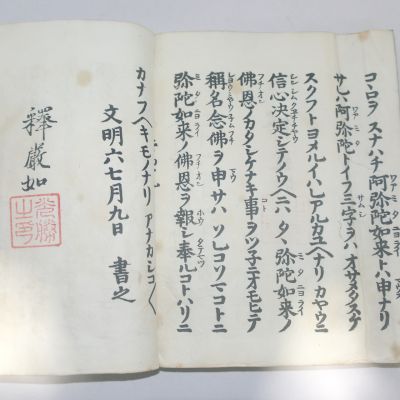 コヽロヲ スナハチ阿弥陀如来トハ申ナリ
サレハ阿弥陀トイフ三字ヲハ オサメタスケ
スクフトヨメルイハレアルカユヘナリ カヤウニ
信心決定シテノウヘニハ タヽ弥陀如来ノ
佛恩ノカタシケナキ事ヲツ子ニオモヒテ
稱名念佛ヲ申サハ ソレコソマコトニ
弥陀如来ノ佛恩ヲ報シ奉ルコトハリニ
カナフヘキモノナリ アナカシコ〱
文明六七月九日 書之
釋嚴如